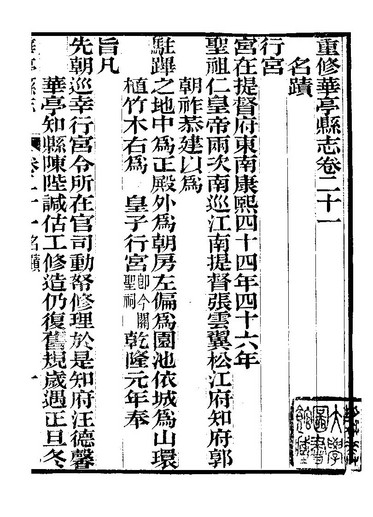 重修華亭縣志卷二十一
名蹟
行宮
宮在提督府東南康熙四十四年四十六年
聖祖仁皇帝兩次南巡江南提督張雲翼松江府知府郭
朝祚恭建以為
駐蹕之地中為正殿外為朝房左偏為園池依城為山環
植竹木右為　皇子行宮即今關聖祠乾隆元年奉
旨凡
先朝巡幸行宮令所在官司動帑修理於是知府汪德馨
華亭知縣陳陞諴估工修造仍復舊規歲遇正旦冬
華亭縣志　卷二十一名蹟　一